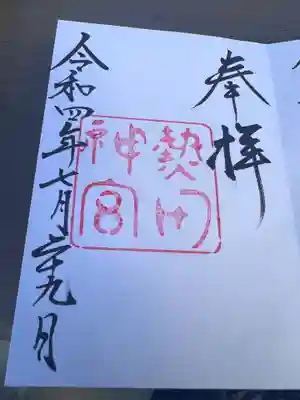 奉拝
熱田
神宮
令和四年七月二十九日